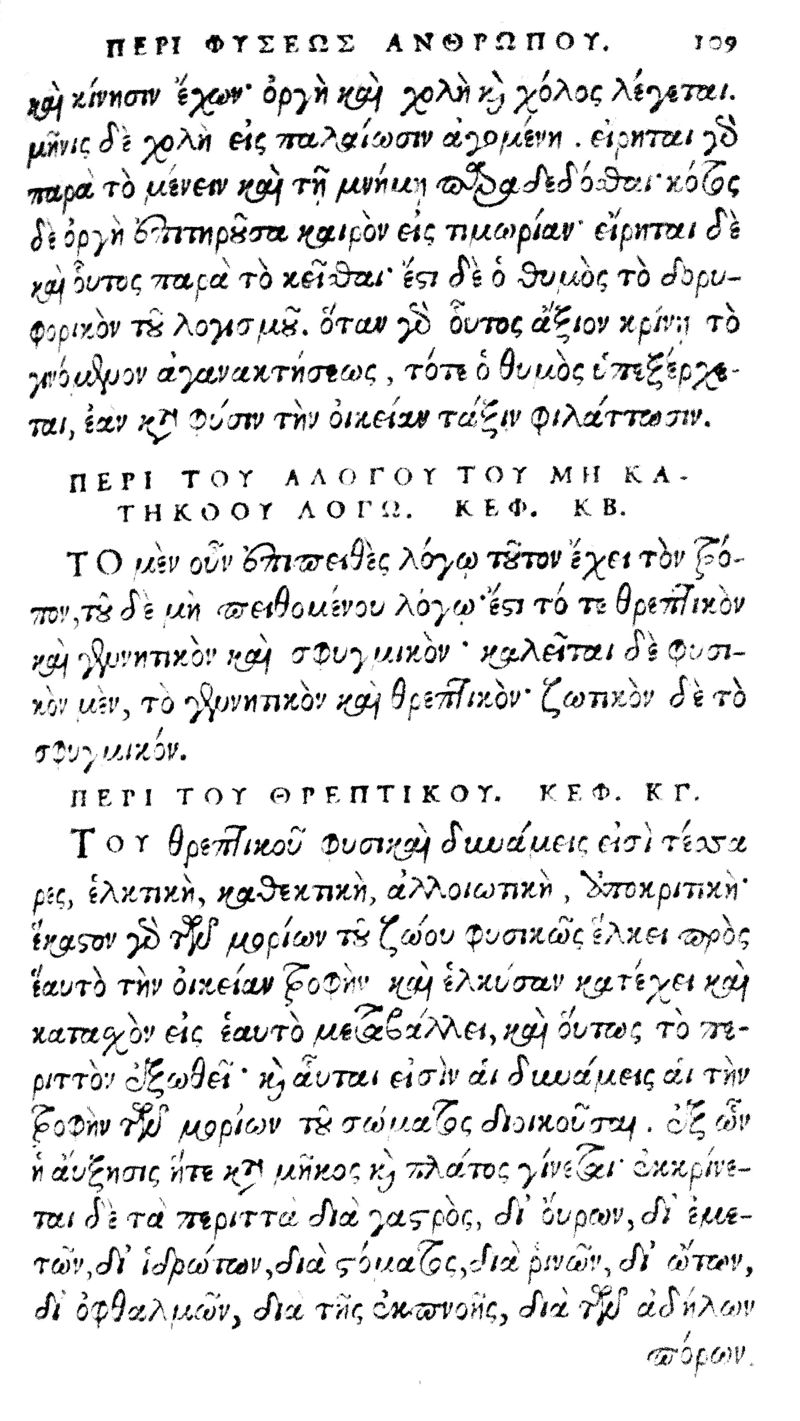 ΠΕΡΙ ΦΥΣΕΩΣ ΑΝΘΡΩΠΟΥ. 109
καὶ κίνησιν ἔχων· ὀργὴ καὶ χολὴ καὶ χόλος λέγεται.
μῆνις δὲ χολὴ εἰς παλαίωσιν ἀγομένη . εἴρηται γὰρ
παρὰ τὸ μένειν καὶ τῇ μνήμῃ παραδεδόσθαι· κότος
δὲ ὀργὴ ἐπιτηροῦσα καιρὸν εἰς τιμωρίαν· εἴρηται δὲ
καὶ οὗτος παρὰ τὸ κεῖσθαι· ἔστι δὲ ὁ θυμὸς τὸ δορυ-
φορικὸν τοῦ λογισμοῦ. ὅταν γὰρ οὗτος ἄξιον κρίνῃ τὸ
γινόμενον ἀγανακτήσεως , τότε ὁ θυμὸς ὑπεξέρχε-
ται, ἐὰν κατὰ φύσιν τὴν οἰκείαν τάξιν φιλάττωσιν.
ΠΕΡΙ ΤΟΥ ΑΛΟΓΟΥ ΤΟΥ ΜΗ ΚΑ-
ΤΗΚΟΟΥ ΛΟΓΩ. ΚΕΦ. ΚΒ.
ΤΟ μὲν οὖν ἐπιπειθὲς λόγῳ τοῦτον ἔχει τὸν τρό-
πον, τοῦ δὲ μὴ πειθομένου λόγῳ ἔστι τό τε θρεπτικὸν
καὶ γεννητικὸν καὶ σφυγμικὸν · καλεῖται δὲ φυσι-
κὸν μὲν, τὸ γεννητικὸν καὶ θρεπτικὸν· ζωτικὸν δὲ τὸ
σφυγμικόν.
ΠΕΡΙ ΤΟΥ ΘΡΕΠΤΙΚΟΥ. ΚΕΦ. ΚΓ.
ΤΟΥ θρεπτικοῦ φυσικαὶ δυνάμεις εἰσὶ τέσσα
ρες, ἑλκτικὴ, καθεκτικὴ, ἀλλοιωτικὴ , ἀποκριτικὴ·
ἕκαστον γὰρ τῶν μορίων τοῦ ζώου φυσικῶς ἕλκει πρὸς
ἑαυτὸ τὴν οἰκείαν τροφὴν καὶ ἑλκύσαν κατέχει καὶ
κατασχὸν εἰς ἑαυτὸ μεταβάλλει, καὶ οὕτως τὸ πε-
ριττὸν ἐξωθεῖ · καὶ αὗται εἰσὶν αἱ δυνάμεις αἱ τὴν
τροφὴν τῶν μορίων τοῦ σώματος διοικοῦσαι . ἐξ ὧν
ἡ αὔξησις ἥτε κατὰ μῆκος καὶ πλάτος γίνεται· ἐκκρίνε-
ται δὲ τὰ περιττὰ διὰ γαστρὸς, δι' οὔρων, δι' ἐμε-
τῶν, δι' ἱδρώτων, διὰ στόματος, διὰ ῥινῶν, δι' ὤτων,
δι' ὀφθαλμῶν, διὰ τῆς ἐκπνοῆς, διὰ τῶν ἀδήλων
πόρων.